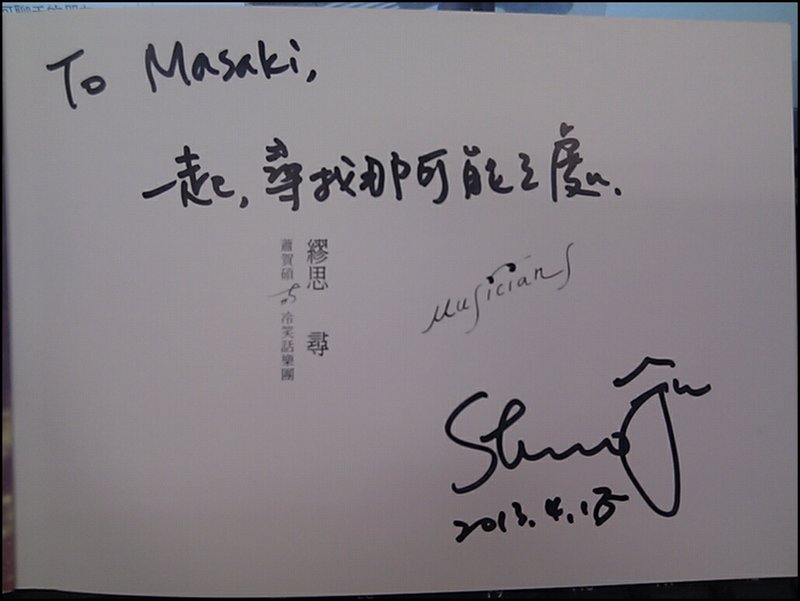 To Masaki,
一起,尋找那可能之處.
繆思 尋
蕭賀碩 的 冷笑話樂團
musicians
2013.4.18